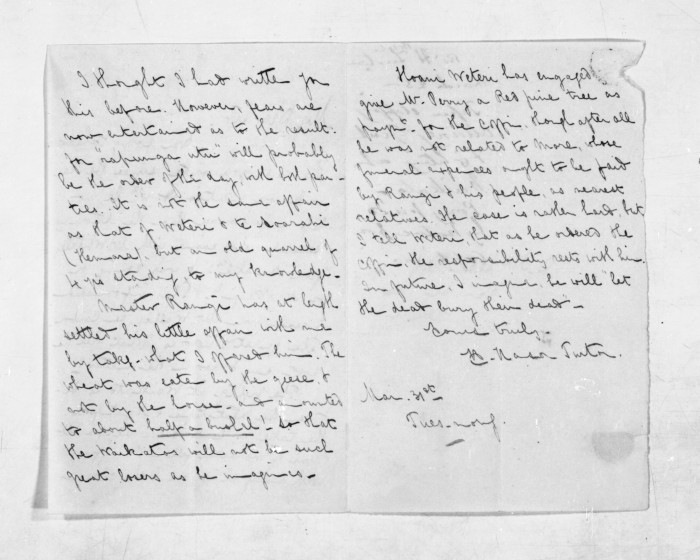 I thought I had written you
this before. However, fears are
now entertained as to the result.
for "rapunga utu" will probably
be the order of the day, with both par-
ties. It is not the same affair
as that of Weteri & te
(Hemara), but an old quarrel of
4 yrs standing, to my knowledge.
Master Rangi has at length
settled his little affair with me
by taking what I offered him. The
wheat was eaten by the geese, &
not by the horse, and amounted
to about half a bushel! So that
the Waikatos will not be such
great losers as he imagines.
Hoani Weteri has engaged
give Mr. Perry a Red pine tree as
paymt. for the Coffin, though after all
he was not related to More, whose
funeral expenses ought to be paid
by Rangi & his people, as nearest
relatives. The case is rather hard, but
I tell Weteri, that as he ordered the
Coffin, the responsibility rests with him.
In future, I imagine, he will "let
the dead bury their dead"-
Yours truly,
H. Hanson Turton.
Mar. 31st
Tues. morng.